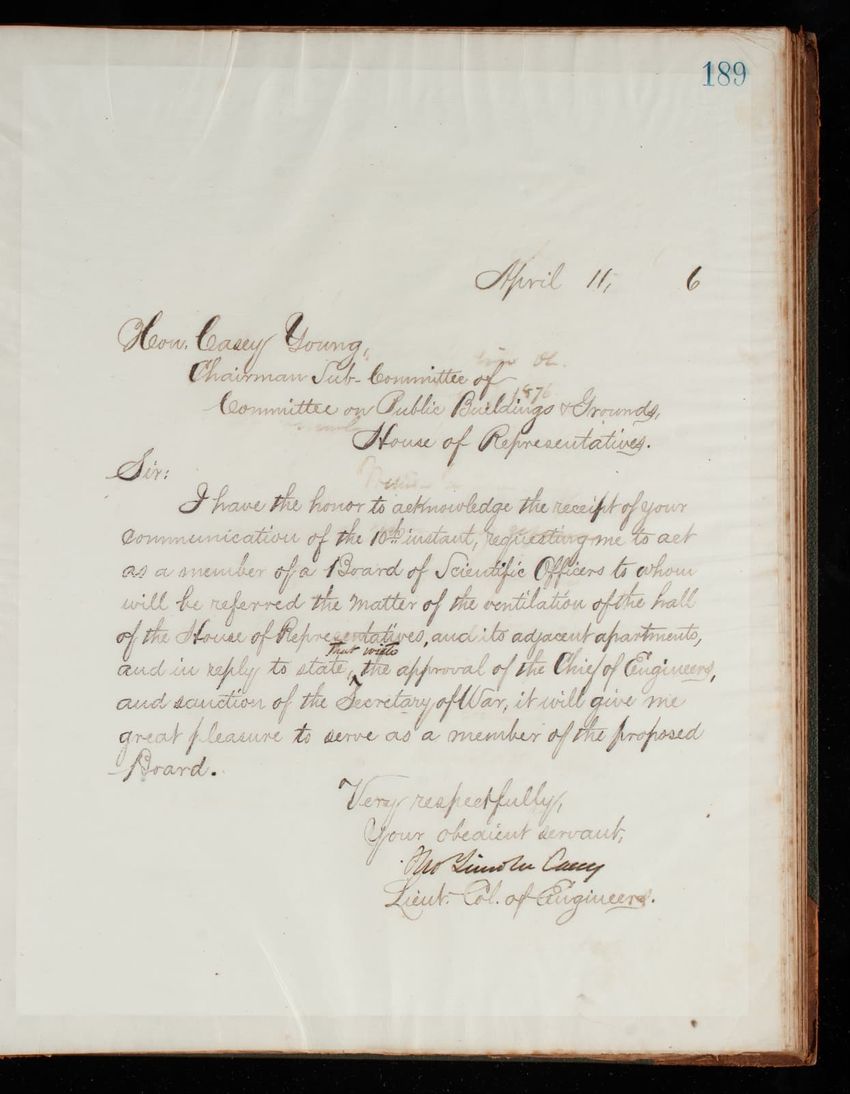 189
April 11, 6
Hon. Casey Young,
Chairman Sub-Committee of
1876
Committee on Public Buildings & Grounds,
House of Representatives.
Sir:
I have the honor to acknowledge the receipt of your
communication of the 10th instant, requesting me to act
as a member of a Board of Scientific Officers to whom
will be referred the matter of the ventilation of the hall
of the House of Representatives, and its adjacent apartments,
that with
and in reply to state, ^ the approval of the Chief of Engineers,
and sanction of the Secretary of War, it will give me
great pleasure to serve as a member of the proposed
Board.
Very respectfully,
Your obedient servant,
Tho Lincoln Casey
Lieut. Col. of Engineers.